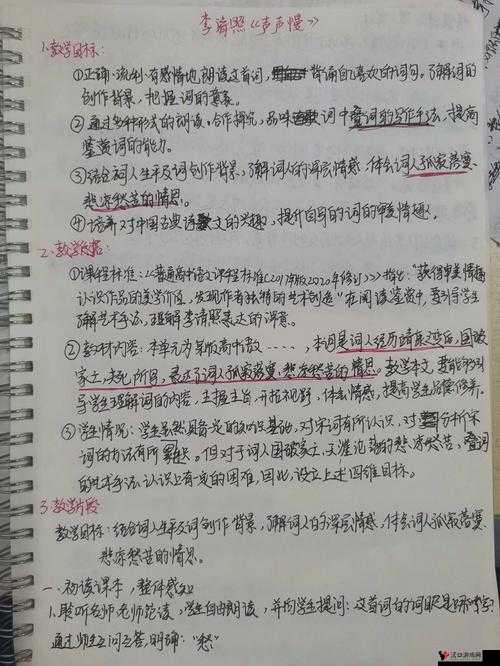 李清照《声声慢》
1.教学目标:
①正确、流利、有感情地朗读这首词,背诵自己喜欢的词句。了解词的
创作背景,把握词的意象。
②通过多种形式的朗读、合作探究,品味词中叠词的写作手法,提高
鉴赏词的能力。
③结合词人生平及词创作背景,了解词人的深层情感,体会词人孤寂落寞、
悲凉愁苦的情思。
④培养对中国古典诗文的兴趣,提升自身的词的审美情趣。
2.教学依据:
①课程标准:《普通高中语文课程标准(2017年版2020年修订)》指出:"获得审美情趣
认识作品的美学价值,发现作者独特的艺术创造"在阅读鉴赏中,要引导学生
了解艺术手法,理解李清照表达的深意。
②教材内容:本单元为……,本词是词人经历靖康之变后,国破
家亡,夫死,所写,表达了词人孤寂落寞、悲凉愁苦的情思,教学本文,要能够引
导学生理解词的内容,主握主旨,开拓视野,体会情感,提高学生品德修养。
③学生情况:学生虽然具备一定的知识基础,对宋词有所认识,对分析宋
词的方法有所积累。但对于词人国破家亡、天涯沦落的悲凉愁苦,叠词
的艺术手法,认识上有一定的困难,因此,设立上述四维目标。
3.教学片段
教学目标:结合词人生平及词创作背景,了解词人的深层情感,体会词人孤寂落寞、
悲凉愁苦的情思。
一、初读课本,整体感知
1.聆听名师老师范读,学生自由朗读,并向学生提问:这首词的词眼是哪个字
通过师生互问互答,明确:"愁"
汉口游戏网